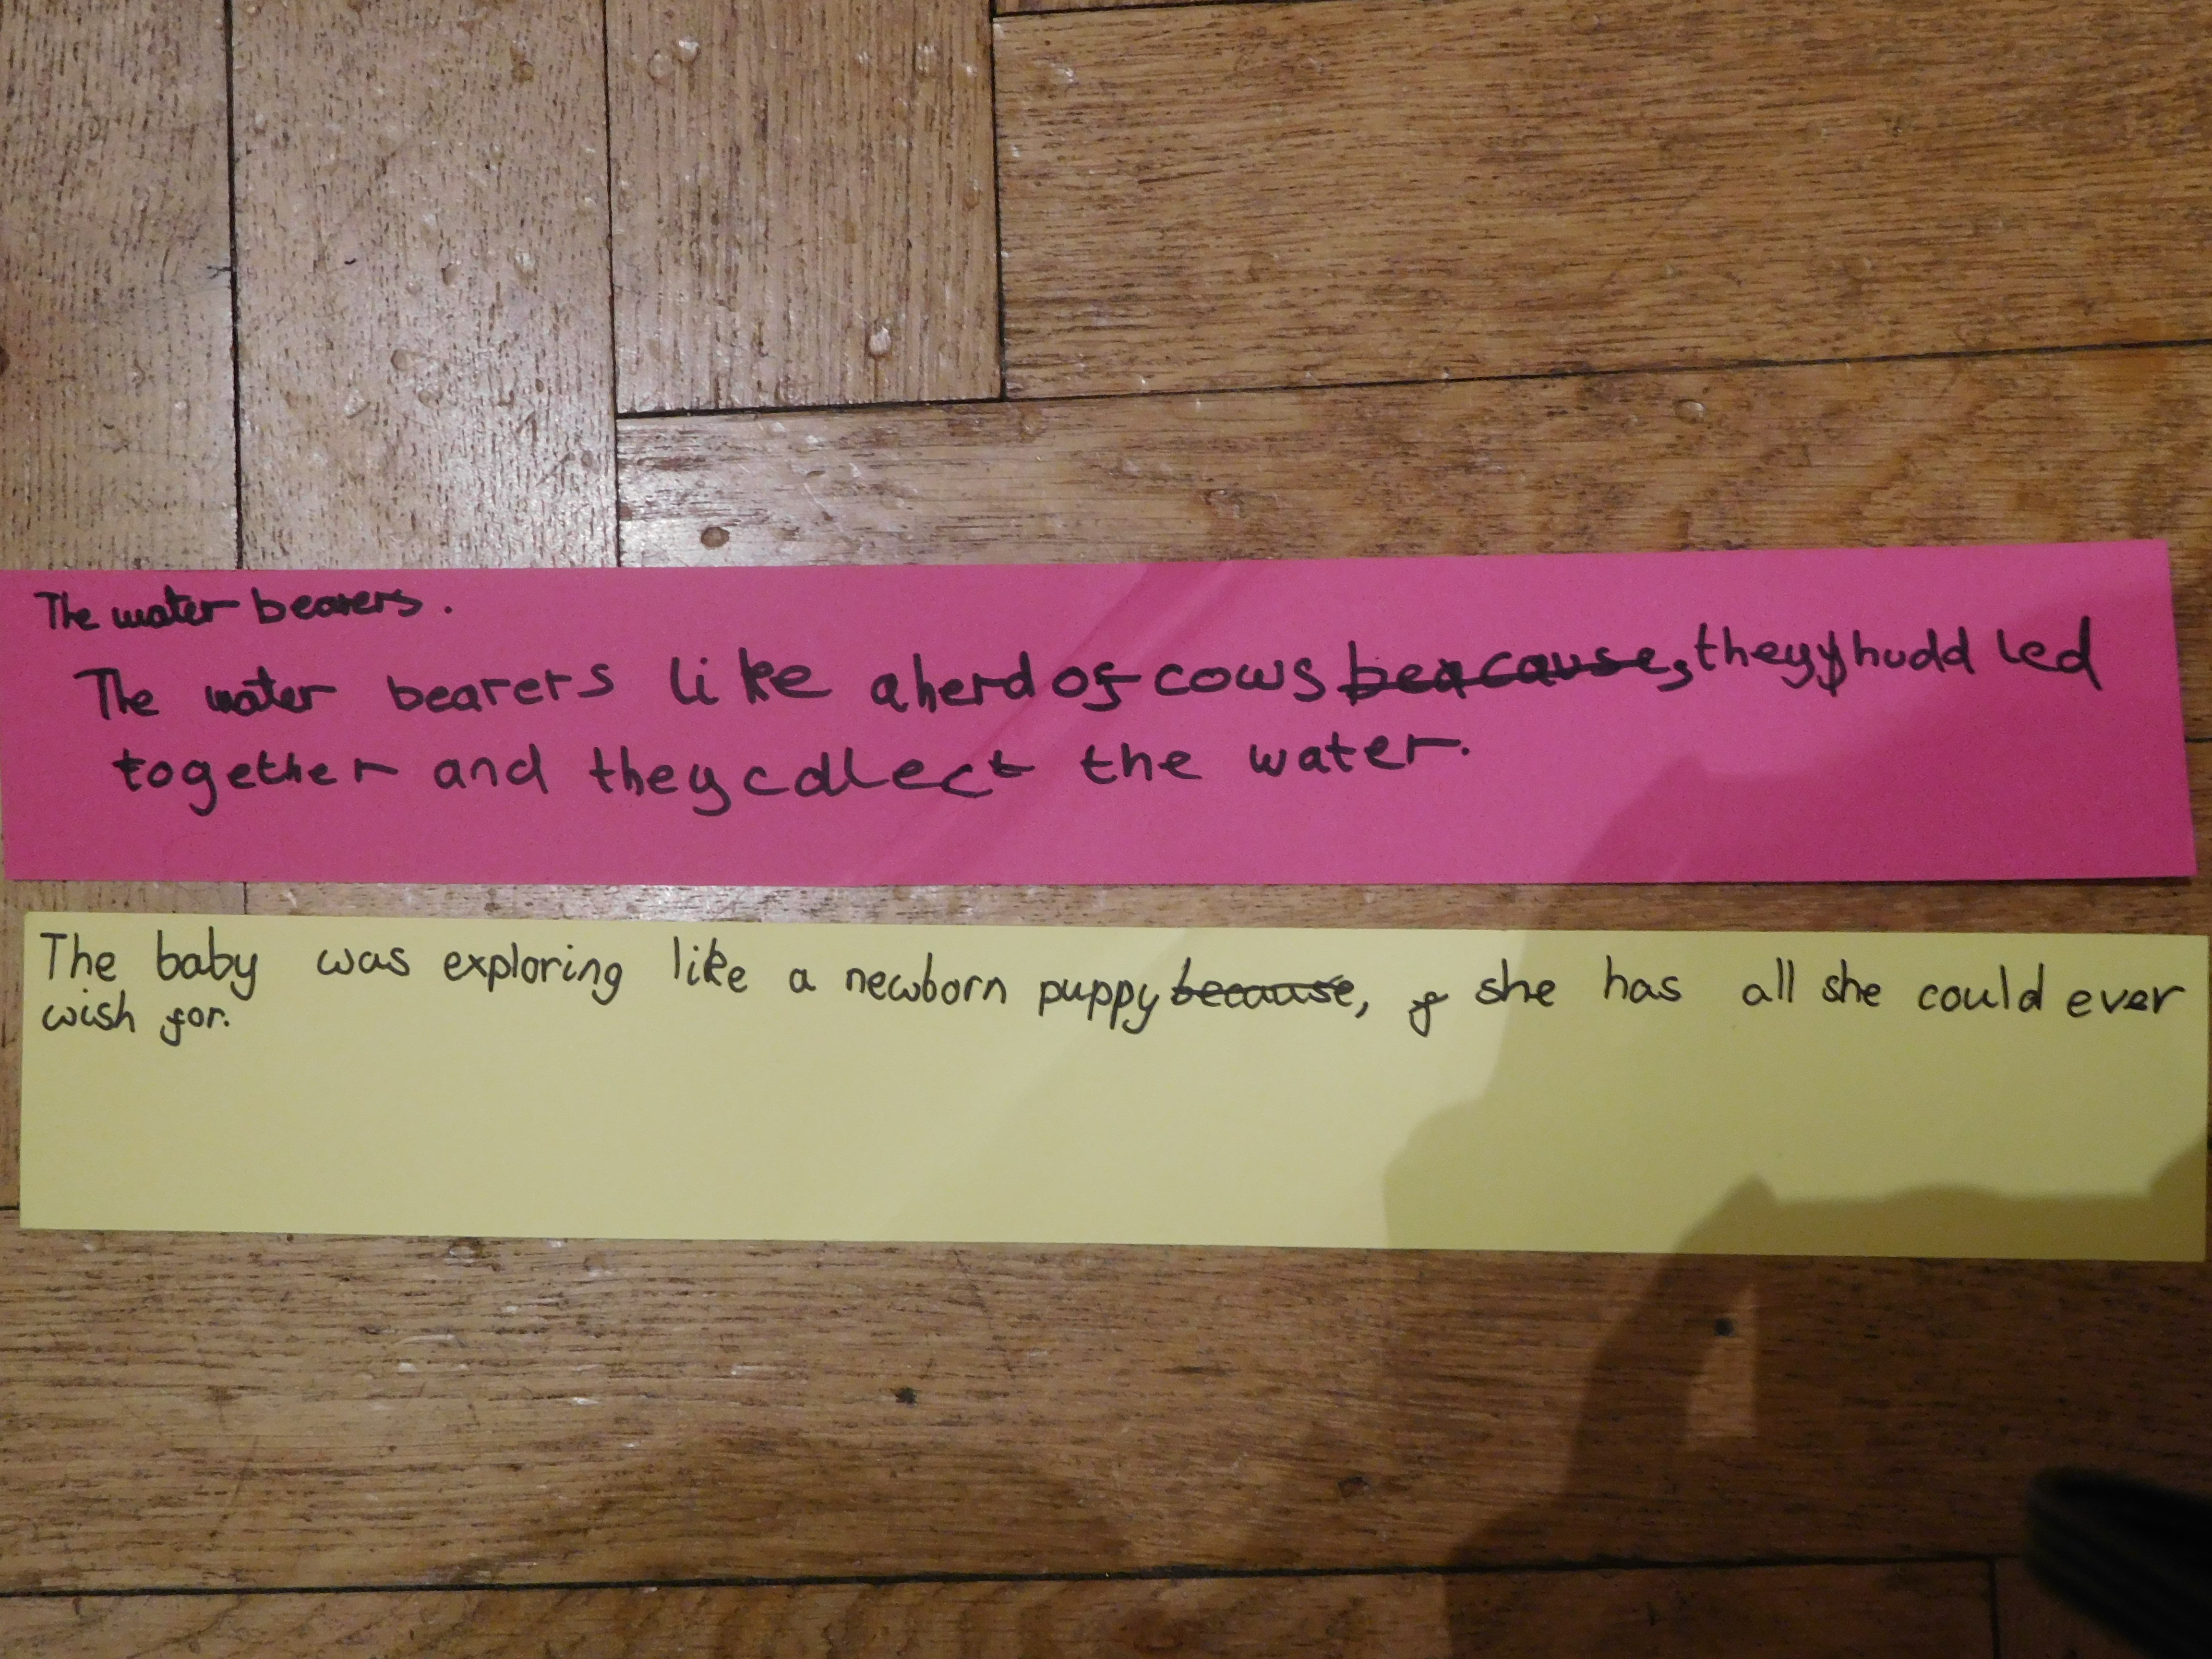 The water bearers.
The water bearers like a herd of cows beacause, they huddled
together and they collect the water.
The baby was exploring like a newborn puppy because, she has all she could ever
wish for.